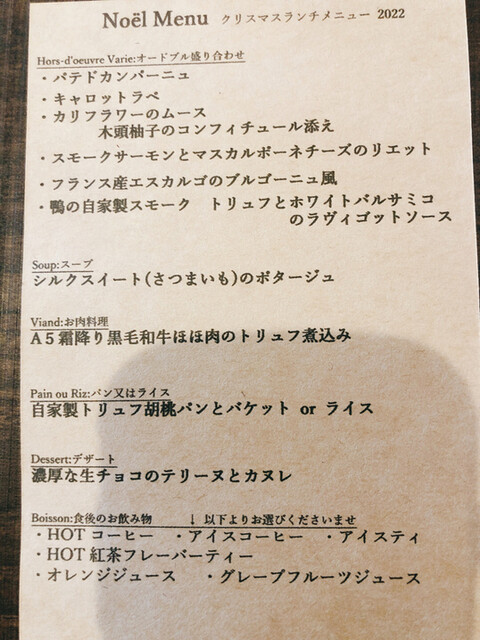 Noël Menu クリスマスランチメニュー 2022
Hors-d'oeuvre Varie:オードブル盛り合わせ
・パテドカンパーニュ
・キャロットラペ
・カリフラワーのムース
木頭柚子のコンフィチュール添え
・スモークサーモンとマスカルポーネチーズのリエット
・フランス産エスカルゴのブルゴーニュ風
・鴨の自家製スモーク トリュフとホワイトバルサミコ
のラヴィゴットソース
Soup:スープ
シルクスイート(さつまいも)のポタージュ
Viand:お肉料理
A５霜降り黒毛和牛ほほ肉のトリュフ煮込み
Pain ou Riz:パン又はライス
自家製トリュフ胡桃パンとバケット or ライス
Dessert:デザート
濃厚な生チョコのテリーヌとカヌレ
Boisson:食後のお飲み物 ↓ 以下よりお選びくださいませ
・HOT コーヒー ・アイスコーヒー ・アイスティ
・HOT 紅茶フレーバーティー
・オレンジジュース ・グレープフルーツジュース